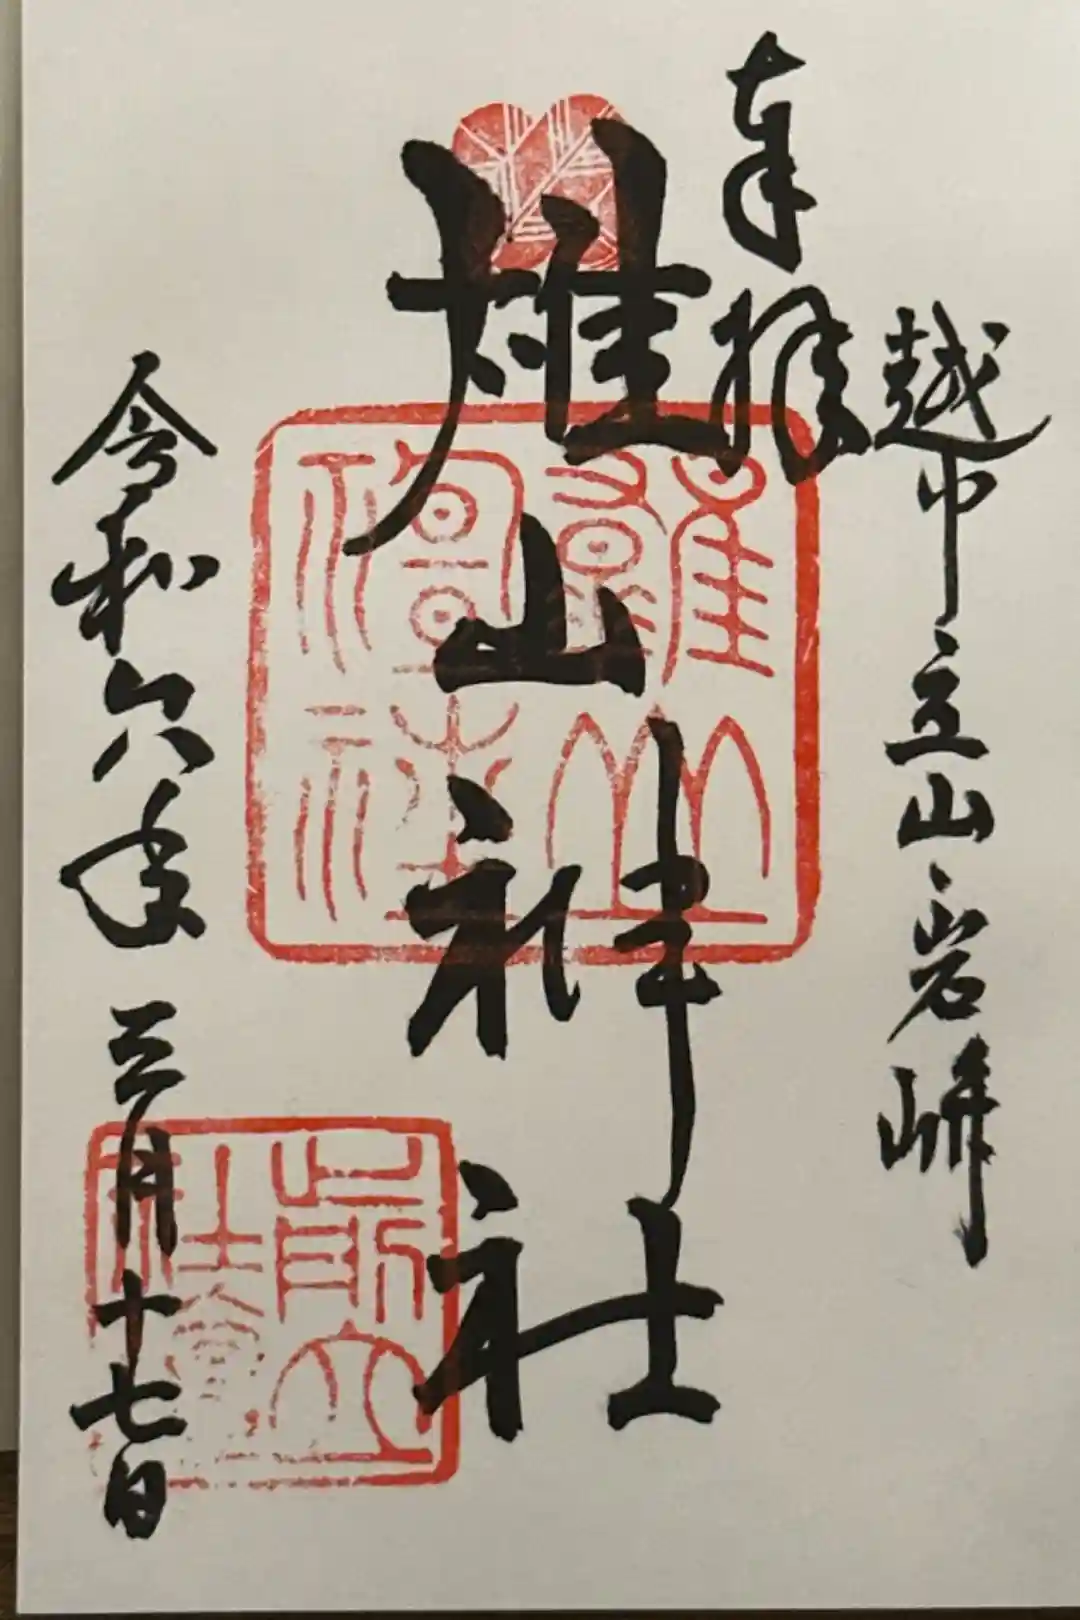 越中立山岩峅
奉拝
雄山神社
雄山
神社
前立
社壇
令和六年三月十七日